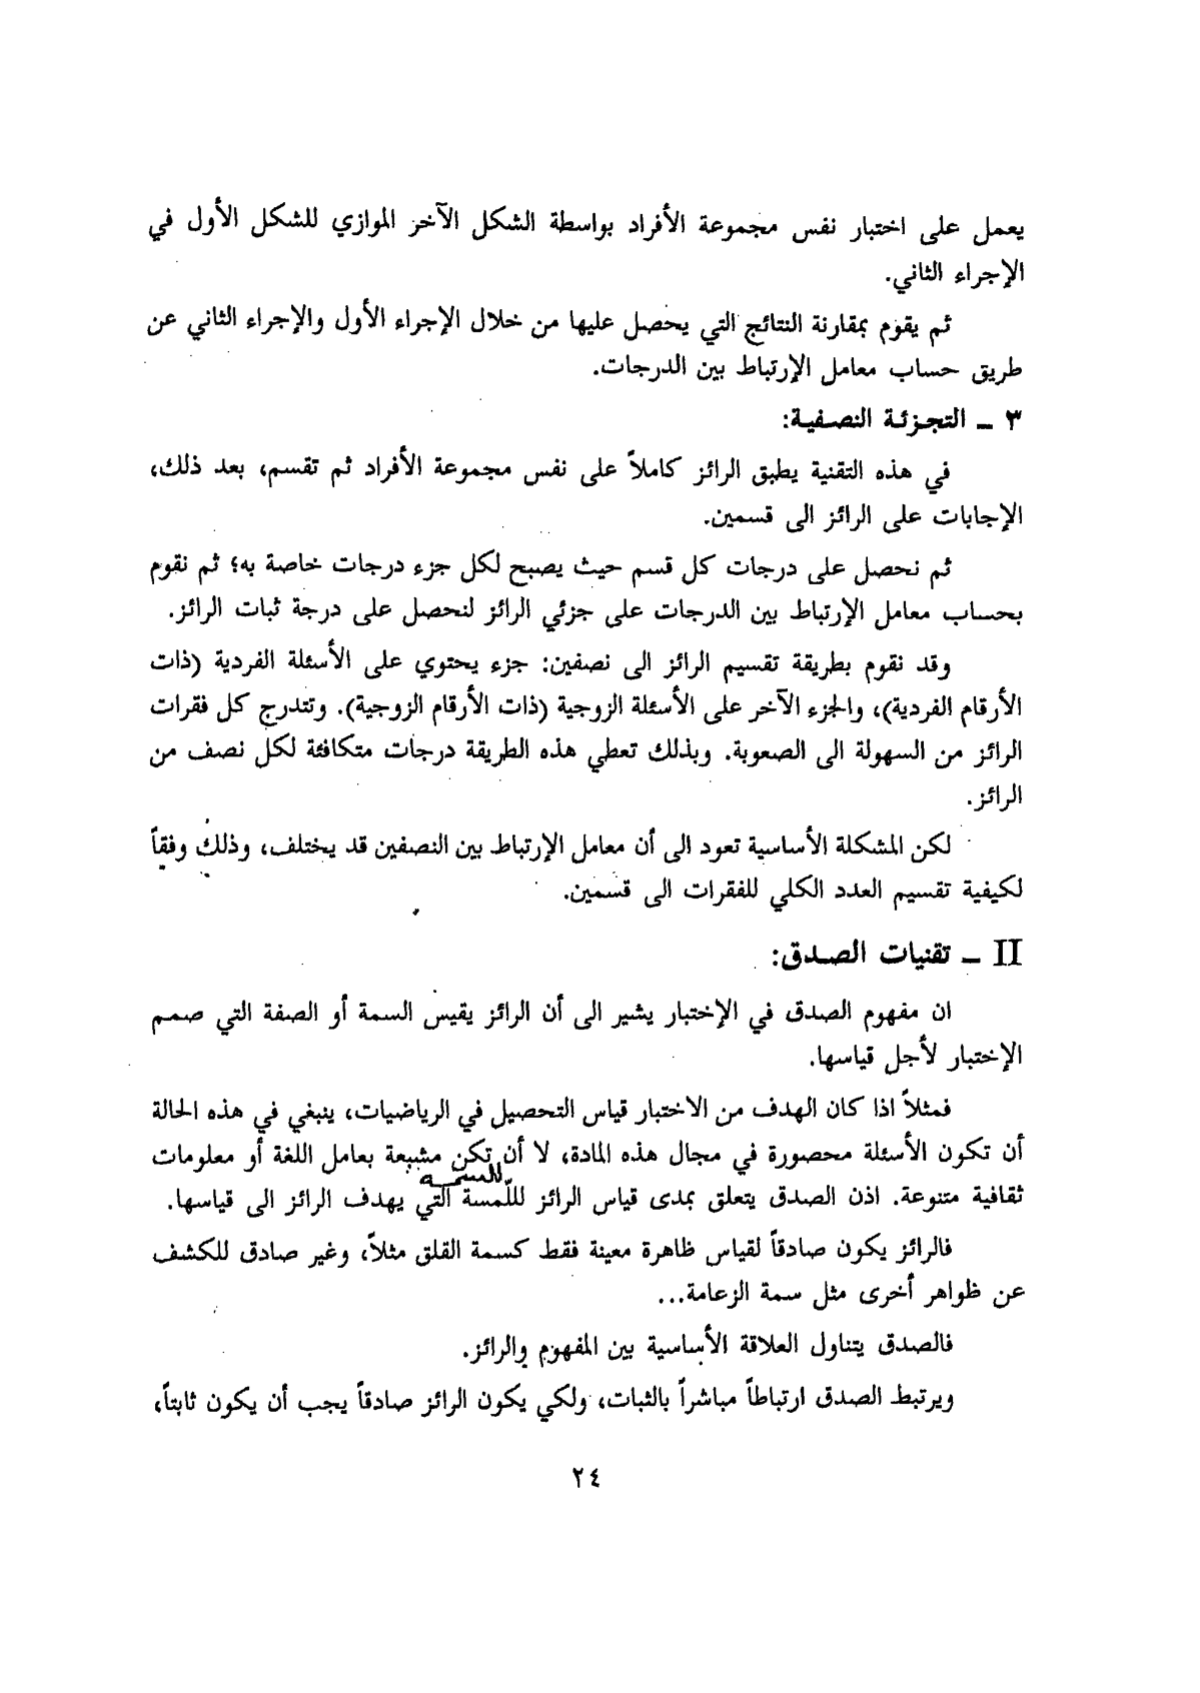 يعمل على اختبار نفس مجموعة الأفراد بواسطة الشكل الآخر الموازي للشكل الأول في
الإجراء الثاني.
ثم يقوم بمقارنة النتائج التي يحصل عليها من خلال الإجراء الأول والإجراء الثاني عن
طريق حساب معامل الإرتباط بين الدرجات.
٣ ـ التجزئة النصفية:
في هذه التقنية يطبق الرائز كاملاً على نفس مجموعة الأفراد ثم تقسم، بعد ذلك،
الإجابات على الرائز الى قسمين.
ثم نحصل على درجات كل قسم حيث يصبح لكل جزء درجات خاصة به؛ ثم نقوم
بحساب معامل الإرتباط بين الدرجات على جزئي الرائز لنحصل على درجة ثبات الرائز.
وقد نقوم بطريقة تقسيم الرائز الى نصفين: جزء يحتوي على الأسئلة الفردية (ذات
الأرقام الفردية)، والجزء الآخر على الأسئلة الزوجية (ذات الأرقام الزوجية). وتتدرج كل فقرات
الرائز من السهولة الى الصعوبة. وبذلك تعطي هذه الطريقة درجات متكافئة لكل نصف من
الرائز.
لكن المشكلة الأساسية تعود الى أن معامل الإرتباط بين النصفين قد يختلف، وذلك وفقاً
لكيفية تقسيم العدد الكلي للفقرات الى قسمين.
II ـ تقنيات الصدق:
ان مفهوم الصدق في الإختبار يشير الى أن الرائز يقيس السمة أو الصفة التي صمم
الإختبار لأجل قياسها.
فمثلاً اذا كان الهدف من الاختبار قياس التحصيل في الرياضيات، ينبغي في هذه الحالة
أن تكون الأسئلة محصورة في مجال هذه المادة، لا أن تكن مشبعة بعامل اللغة أو معلومات
للسمة
ثقافية متنوعة. اذن الصدق يتعلق بمدى قياس الرائز للّمسة التي يهدف الرائز الى قياسها.
فالرائز يكون صادقاً لقياس ظاهرة معينة فقط كسمة القلق مثلاً، وغير صادق للكشف
عن ظواهر أخرى مثل سمة الزعامة...
فالصدق يتناول العلاقة الأساسية بين المفهوم والرائز.
ويرتبط الصدق ارتباطاً مباشراً بالثبات، ولكي يكون الرائز صادقاً يجب أن يكون ثابتاً،
٢٤